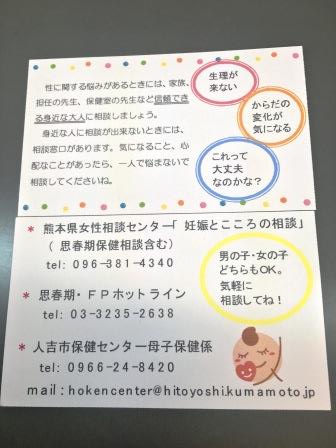 性に関する悩みがあるときには、家族、
担任の先生、保健室の先生など信頼でき
る身近な大人に相談しましょう。
身近な人に相談が出来ないときには、
相談窓口があります。気になること、心
配なことがあったら、一人で悩まないで
相談してくださいね。
生理が
来ない
からだの
変化が
気になる
これって
大丈夫
なのかな?
* 熊本県女性相談センター「妊娠とこころの相談」
(思春期保健相談含む)
tel: 096-381-4340
* 思春期・FPホットライン
tel: 03-3235-2638
* 人吉市保健センター母子保健係
tel: 0966-24-8420
mail:hokencenter@hitoyoshi.kumamoto.jp
男の子・女の子
どちらもOK。
気軽に
相談してね!